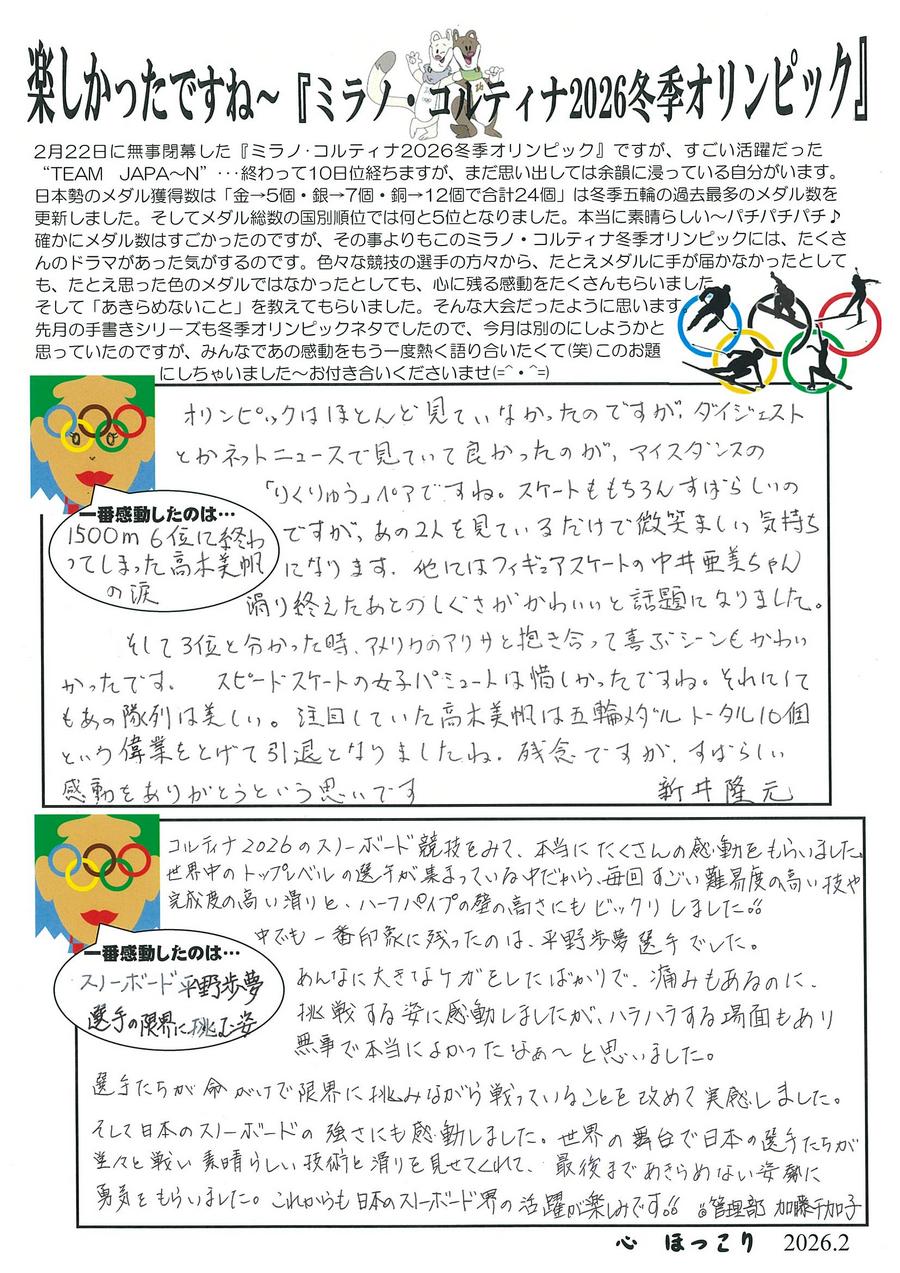 楽しかったですね~『ミラノ・コルティナ2026冬季オリンピック』
2月22日に無事閉幕した『ミラノ・コルティナ2026冬季オリンピック』ですが、すごい活躍だった
“TEAM JAPA~N”･･･終わって10日位経ちますが、まだ思い出しては余韻に浸っている自分がいます。
日本勢のメダル獲得数は「金→5個・銀→7個・銅→12個で合計24個」は冬季五輪の過去最多のメダル数を
更新しました。そしてメダル総数の国別順位では何と5位となりました。本当に素晴らしい~パチパチパチ♪
確かにメダル数はすごかったのですが、その事よりもこのミラノ・コルティナ冬季オリンピックには、たくさ
んのドラマがあった気がするのです。色々な競技の選手の方々から、たとえメダルに手が届かなかったとして
も、たとえ思った色のメダルではなかったとしても、心に残る感動をたくさんもらいました。
そして「あきらめないこと」を教えてもらいました。そんな大会だったように思います
先月の手書きシリーズも冬季オリンピックネタでしたので、今月は別のにしようかと
思っていたのですが、みんなであの感動をもう一度熱く語り合いたくて(笑)このお題
にしちゃいました~お付き合いくださいませ(=^・^=)
オリンピックはほとんど見ていなかったのですが、ダイジェスト
とかネットニュースで見ていて良かったのが、アイスダンスの
「りくりゅう」ペアですね。スケートももちろんすばらしいの
ですが、あの2人を見ているだけで微笑ましい気持ち
になります。他にはフィギュアスケートの中井亜美ちゃん
滑り終えたあとのしぐさがかわいいと話題になりました。
そして3位と分かった時、アメリカのアリサと抱き合って喜ぶシーンもかわい
かったです。 スピードスケートの女子パシュートは惜しかったですね。それにして
もあの隊列は美しい。注目していた高木美帆は五輪メダルトータル10個
という偉業をとげて引退となりましたね。残念ですが、すばらしい
感動をありがとうという思いです 新井隆元
一番感動したのは…
1500m 6位に終わ
ってしまった高木美帆
の涙
コルティナ2026のスノーボード競技をみて、本当にたくさんの感動をもらいました。
世界中のトップレベルの選手が集まっている中だから、毎回すごい難易度の高い技や
完成度の高い滑りと、ハーフパイプの壁の高さにもビックリしました!!
中でも一番印象に残ったのは、平野歩夢選手でした。
あんなに大きなケガをしたばかりで、痛みもあるのに、
挑戦する姿に感動しましたが、ハラハラする場面もあり
無事で本当によかったなぁ~と思いました。
選手たちが命がけで限界に挑みながら戦っていることを改めて実感しました。
そして日本のスノーボードの強さにも感動しました。世界の舞台で日本の選手たちが
堂々と戦い素晴らしい技術と滑りを見せてくれて、最後まであきらめない姿勢に
勇気をもらいました。これからも日本のスノーボード界の活躍が楽しみです!! 管理部 加藤千加子
一番感動したのは…
スノーボード平野歩夢
選手の限界に挑む姿
心 ほっこり 2026.2